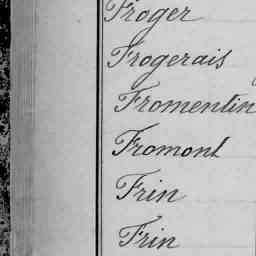 Froger
Frogerais
Fromentin
Fromont
Frin
Frin